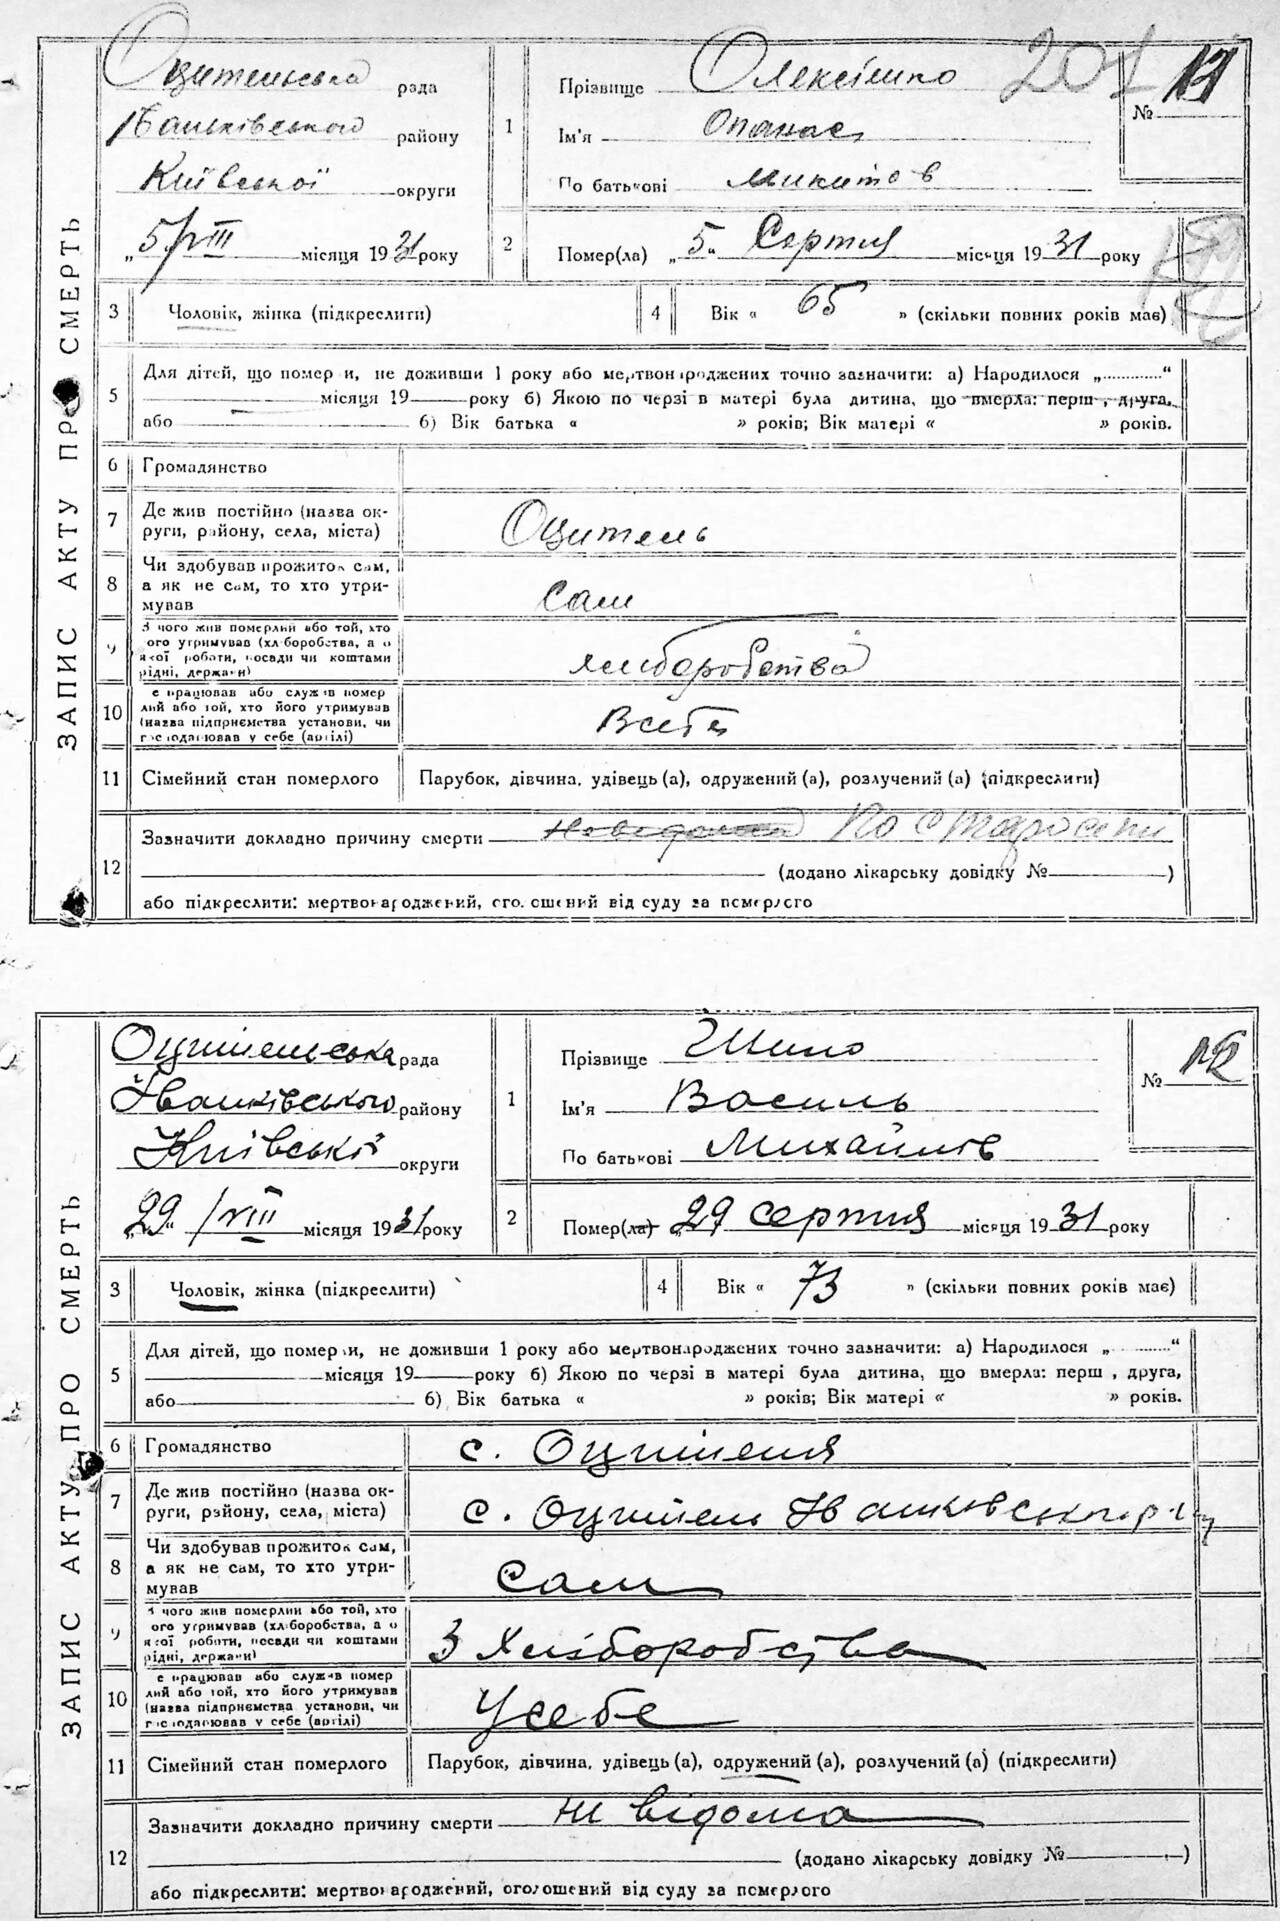 ЗАПИС АКТУ ПРО СМЕРТЬ
Оцительська рада
Іванківського району
Київської округи
"5/VIII місяця 1931 року
1 Прізвище Олексієнко
Ім'я Опанас
По батькові Микитов
201
№
2 Помер(ла) "5" Серпня місяця 1931 року
3 Чоловік, жінка (підкреслити)
4 Вік « 65 » (скільки повних років має)
5 Для дітей, що померли, не доживши 1 року або мертвонароджених точно зазначити: а) Народилося „............“
місяця 19 року б) Якою по черзі в матері була дитина, що вмерла: перш , друга,
або б) Вік батька « » років; Вік матері « » років.
6 Громадянство
7 Де жив постійно (назва ок-
руги, району, села, міста) Оцитель
8 Чи здобував прожиток сам,
а як не сам, то хто утри-
мував Сам
9 З чого жив померлий або той, хто
ого утримував (хліборобства, а о
якої роботи, посади чи коштами
рідні, держави) хліборобства
10 е працював або служив помер
лий або той, хто його утримував
(назва підприємства установи, чи
господарював у себе (артілі) Всебе
11 Сімейний стан померлого Парубок, дівчина, удівець (а), одружений (а), розлучений (а) (підкреслити)
12 Зазначити докладно причину смерти Невідома По старости
(додано лікарську довідку № )
або підкреслити: мертвонароджений, оголошений від суду за померлого
ЗАПИС АКТУ ПРО СМЕРТЬ
Оцительська рада
Іванківського району
Київської округи
"29" /VIII місяця 1931 року
1 Прізвище Шило
Ім'я Василь
По батькові Михайлів
№ 12
2 Помер(ла) "29 серпня місяця 1931 року
3 Чоловік, жінка (підкреслити)
4 Вік « 73 » (скільки повних років має)
5 Для дітей, що померли, не доживши 1 року або мертвонароджених точно зазначити: а) Народилося „............“
місяця 19 року б) Якою по черзі в матері була дитина, що вмерла: перш , друга,
або б) Вік батька « » років; Вік матері « » років.
6 Громадянство с. Оцителя
7 Де жив постійно (назва ок-
руги, району, села, міста) с. Оцитель
8 Чи здобував прожиток сам,
а як не сам, то хто утри-
мував Сам
9 чого жив померлий або той, хто
ого утримував (хліборобства, а о
якої роботи, посади чи коштами
рідні, держави) З Хліборобства
10 е працював або служив помер
лий або той, хто його утримував
(назва підприємства установи, чи
господарював у себе (артілі) Усебе
11 Сімейний стан померлого Парубок, дівчина, удівець (а), одружений (а), розлучений (а) (підкреслити)
12 Зазначити докладно причину смерти Ни відома
(додано лікарську довідку № )
або підкреслити: мертвонароджений, оголошений від суду за померлого